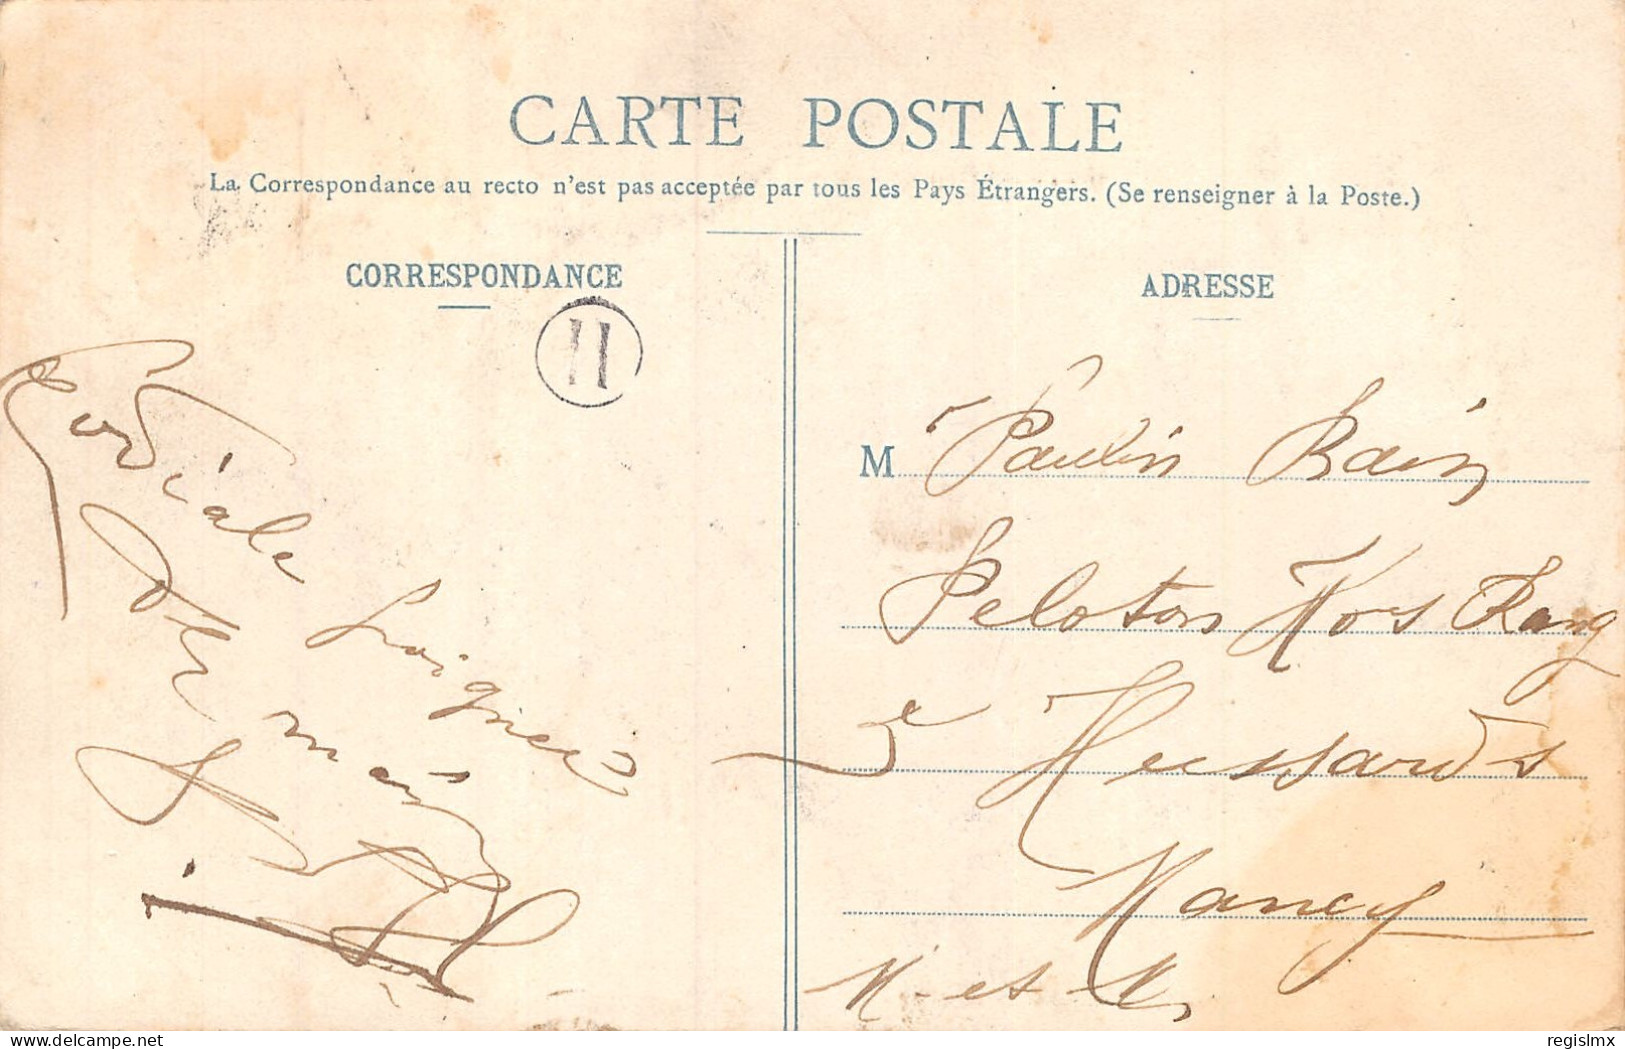 CARTE POSTALE
La Correspondance au recto n'est pas acceptée par tous les Pays Étrangers. (Se renseigner à la Poste.)
CORRESPONDANCE
11
Cordiale
Poignée
de main
ADRESSE
M r Paulin Bain
Peloton Hors Rang
5e Hussards
Nancy
M-et-M.
delcampe.net
regislmx